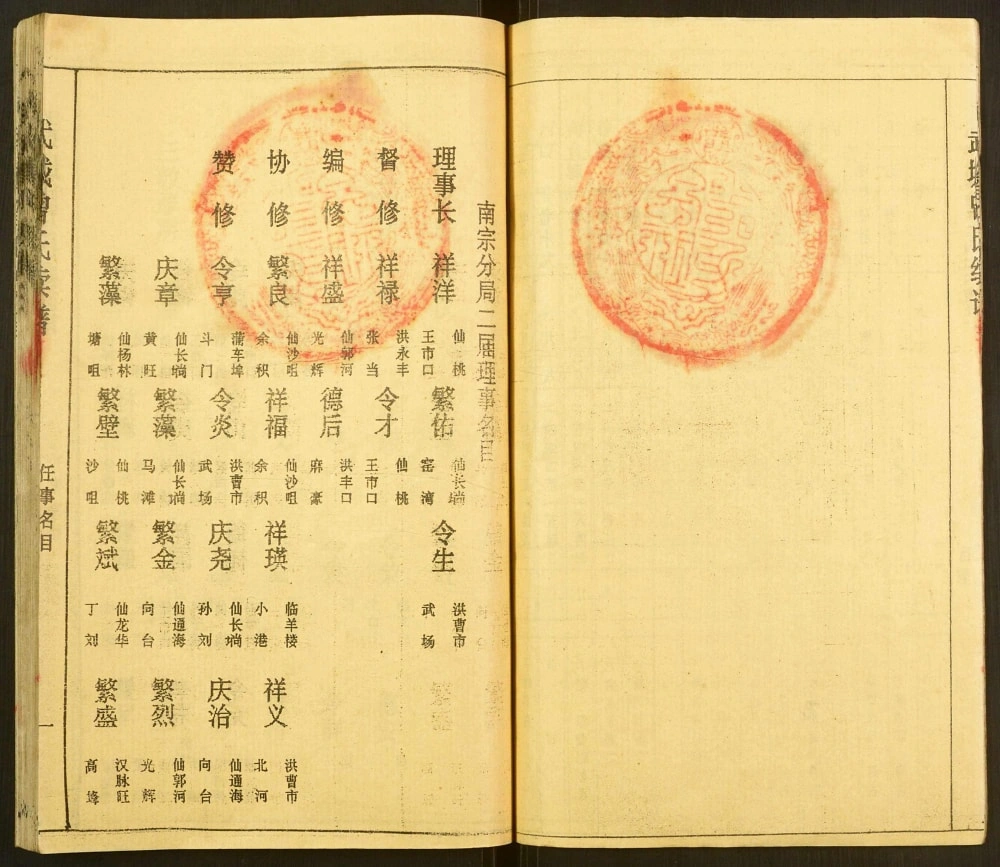 武城曾氏
南宗分局二届理事名目
理事长 祥洋 仙桃 王市口 繁佑 仙长埫 窑湾 令生 洪曹市 武场
督修 祥禄 洪永丰 张当 令才 仙桃 王市口
编修 祥盛 仙郭河 光辉 德后 洪丰口 麻豪
协修 繁良 仙沙咀 余积 祥福 仙沙咀 余积 祥瑛 临羊楼 小港 祥义 洪曹市 北河
赞修 令亨 蒲车埠 斗门 令炎 洪曹市 武场 庆尧 仙长埫 孙刘 庆治 仙通海 向台
庆章 仙长埫 黄旺 繁藻 仙长埫 马滩 繁金 仙通海 向台 繁烈 仙郭河 光辉
繁藻 仙杨林 塘咀 繁壁 仙桃 沙咀 繁斌 仙龙华 丁刘 繁盛 汉脉旺 高
武城曾氏宗谱 任事名目 一